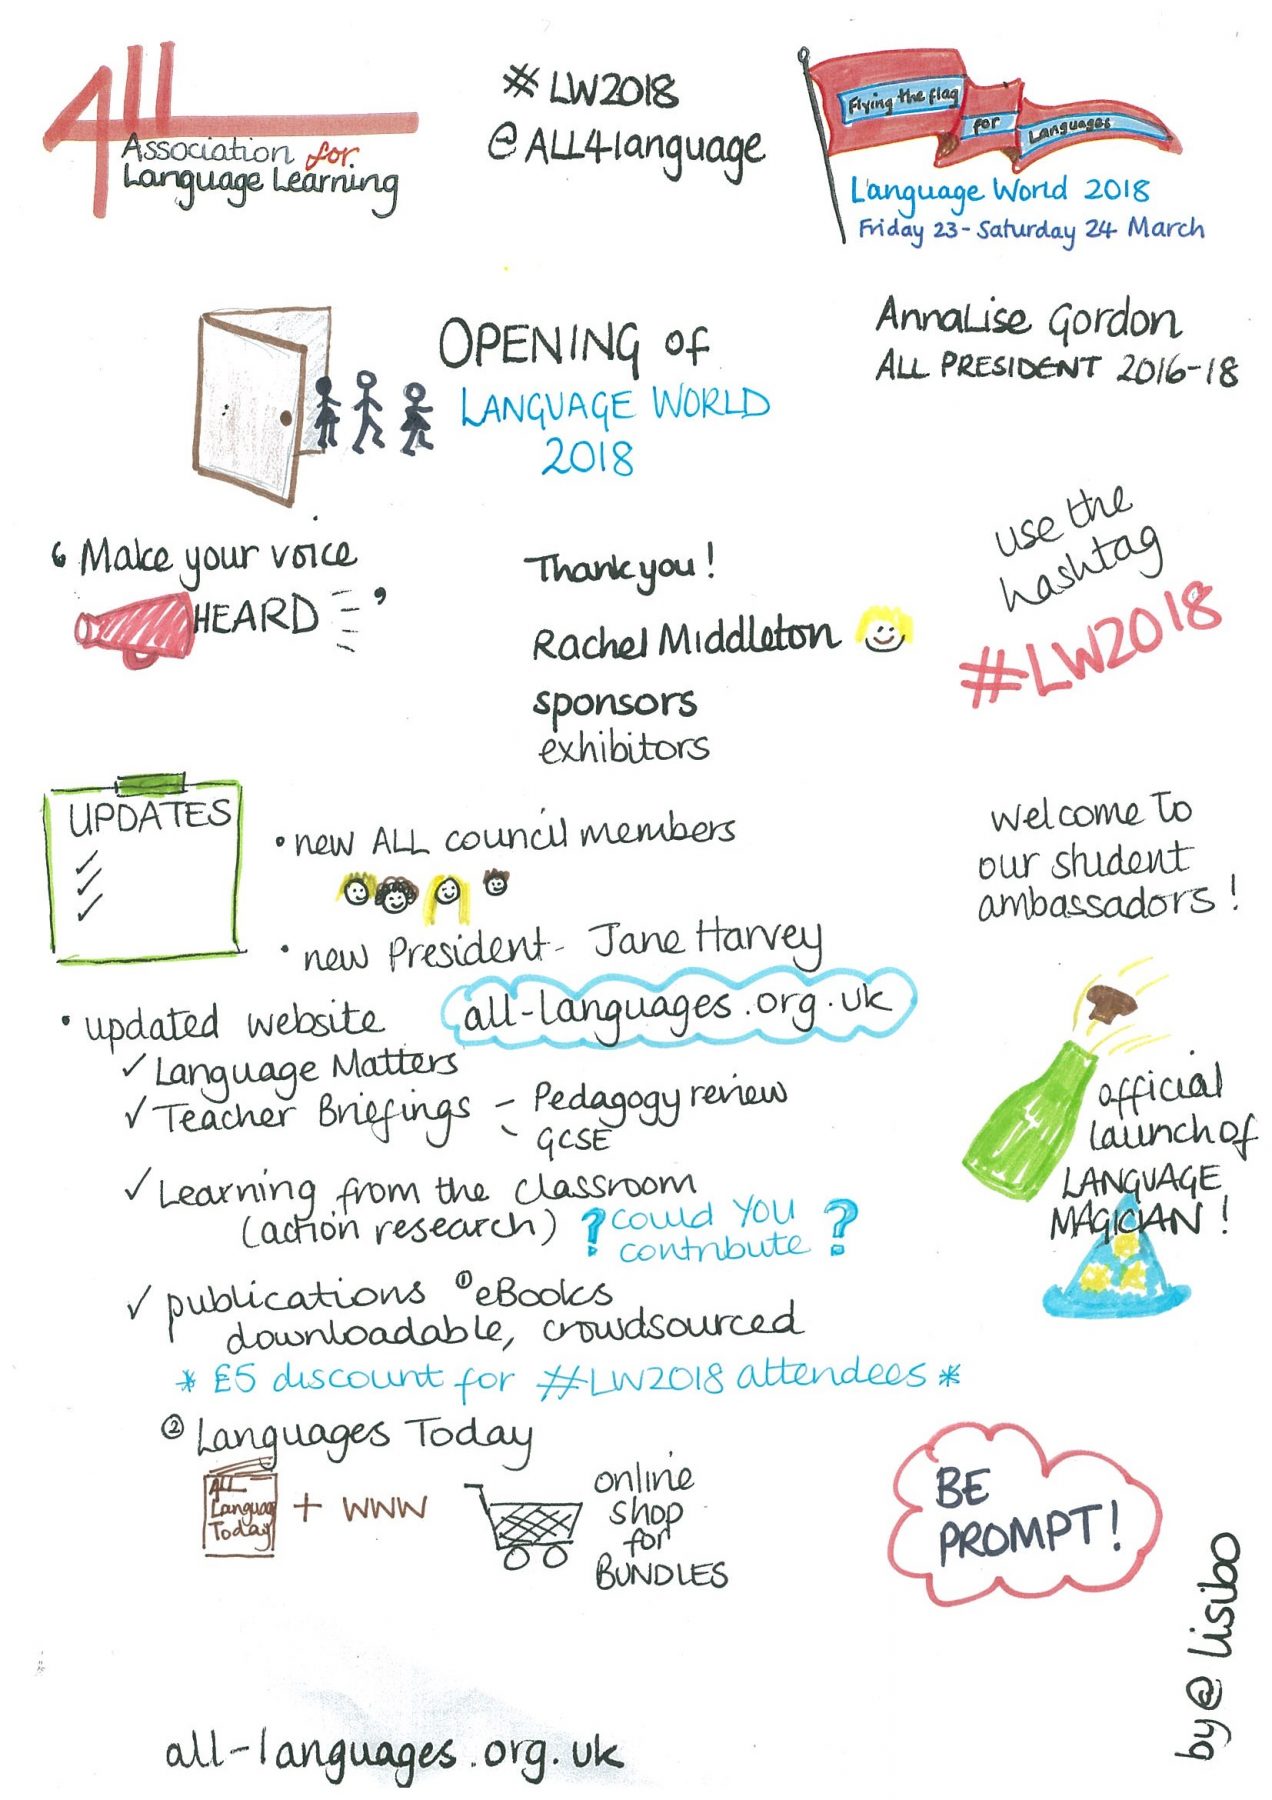 All
Association for
Language Learning
#LW2018
@ALL4language
Flying the flag
for
Languages
Language World 2018
Friday 23 - Saturday 24 March
OPENING of
LANGUAGE WORLD
2018
AnnaLise Gordon
ALL PRESIDENT 2016-18
'Make your voice
HEARD'
Thank you!
Rachel Middleton
sponsors
exhibitors
use the
hashtag
#LW2018
UPDATES
• new ALL council members
• new President - Jane Harvey
• updated website all-languages.org.uk
✓ Language Matters
✓ Teacher Briefings - Pedagogy review
- GCSE
✓ Learning from the classroom
(action research) ? could YOU
contribute ?
✓ publications ① eBooks
downloadable, crowdsourced
* £5 discount for #LW2018 attendees *
② Languages Today
ALL
Language
Today
+ WWW
online
shop
for
BUNDLES
welcome to
our student
ambassadors!
official
launch of
LANGUAGE
MAGICIAN!
BE
PROMPT!
by @lisibo
all-languages.org.uk